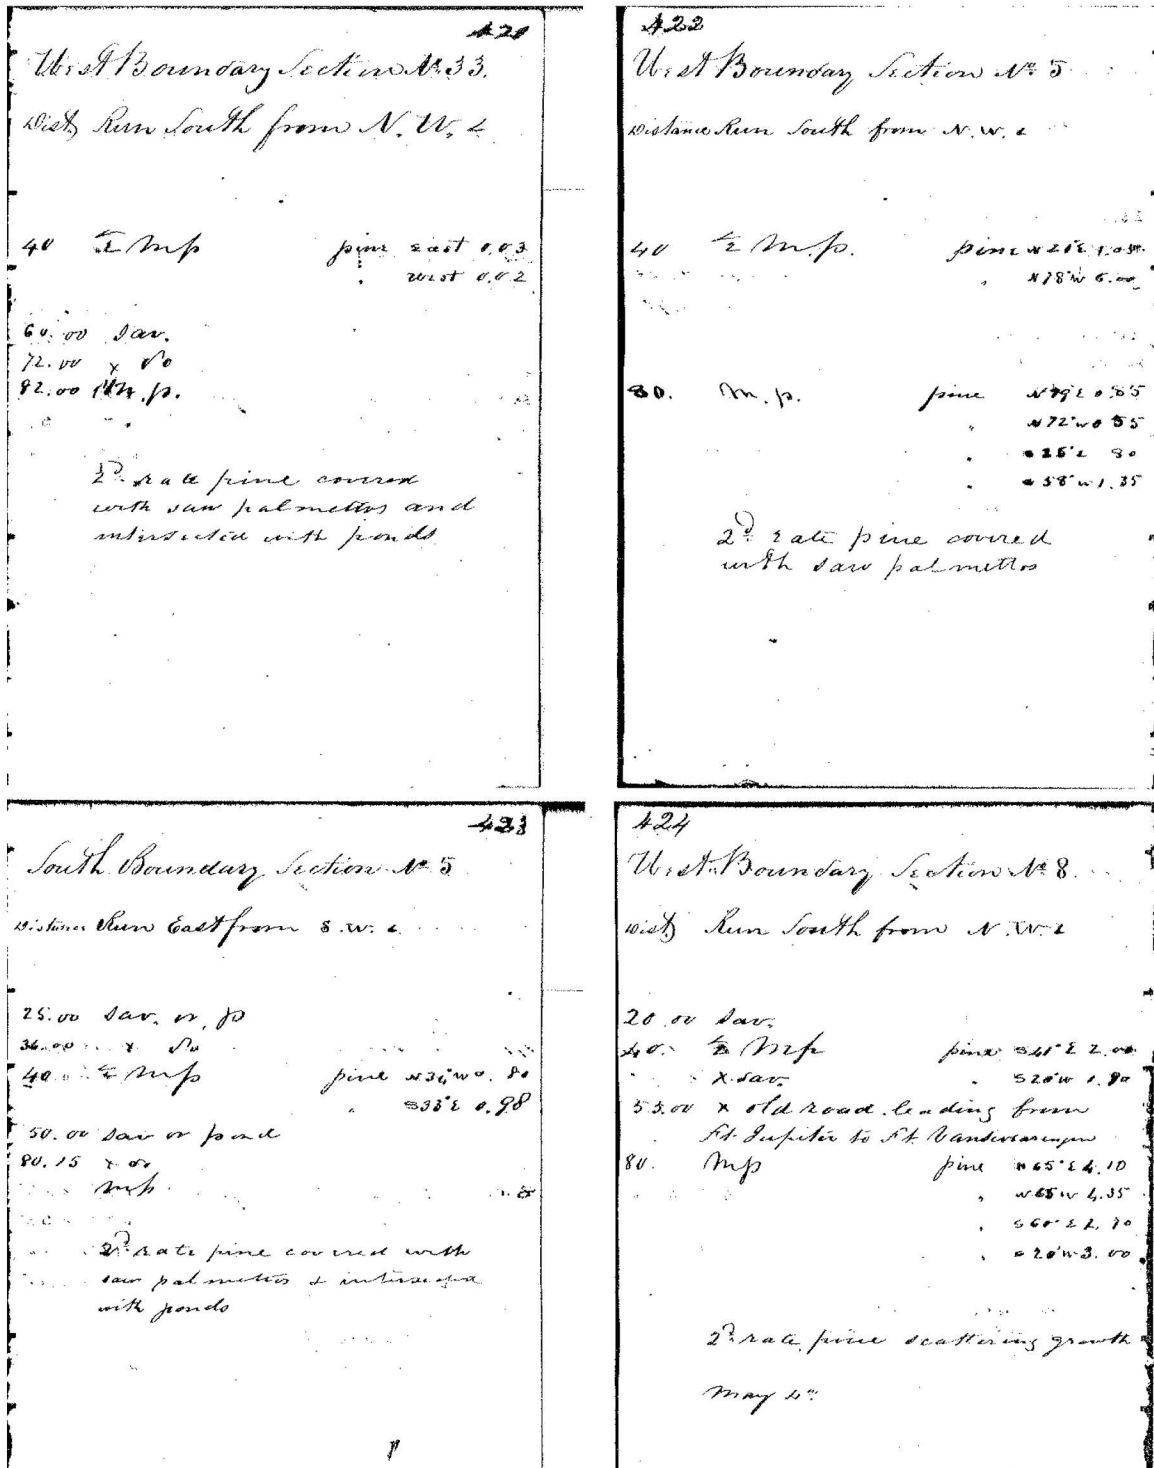 420
West Boundary Section No 33.
Dist Run South from N. W. c
40 ½ M p pine east 0.03
" west 0.02
60.00 Sav.
72.00 x Do
82.00 M. p.
2d rate pine covered
with saw palmettos and
intersected with ponds
422
West Boundary Section No 5
Distance Run South from N. W. c
40 ½ M. p. pine
" N78°W 6.00
80. M. p. pine N79°E 0.85
" N72°W 0 55
" 80
" 58°W 1.35
2d rate pine covered
with saw palmettos
423
South Boundary Section No 5
Distance Run East from S. W. c
25.00 Sav. or p
36.00 x Do
40 ½ M p pine
" S33°E 0.98
50.00 Sav or pond
80.15 x Do
M p
2d rate pine covered with
saw palmettos & intersected
with ponds
424
West Boundary Section No 8
Dist Run South from N. W. c
20.00 Sav.
40. ½ M p pine 2.00
x Sav. " S20°W 1.80
53.00 x old road leading from
Ft. Jupiter to Ft.
80. M p pine N65°E 4.10
" N65W
" S60°E
" 20°W 3.00
2d rate pine scattering growth
May 4th